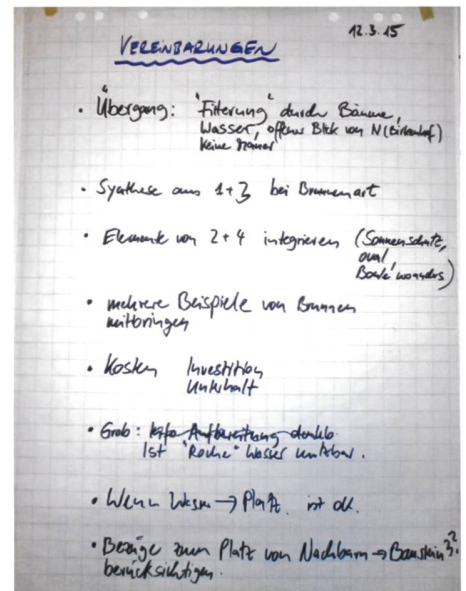 12.3.15
VEREINBARUNGEN
• Übergang: "Filterung" durch Bäume,
Wasser, offener Blick von N (Birkenhof)
keine Mauer
• Synthese aus 1+3 bei Brunnenart
• Elemente von 2+4 integrieren (Sonnenschutz,
oval,
Boule woanders)
• mehrere Beispiele von Brunnen
mitbringen
• Kosten Investition
Unterhalt
• Grob: Aufbereitung
Ist "Roche" Wasser nutzbar.
• Wenn Wasser → Platz ist ok.
• Bezüge zum Platz von Nachbarn → Baustein 3?
berücksichtigen.